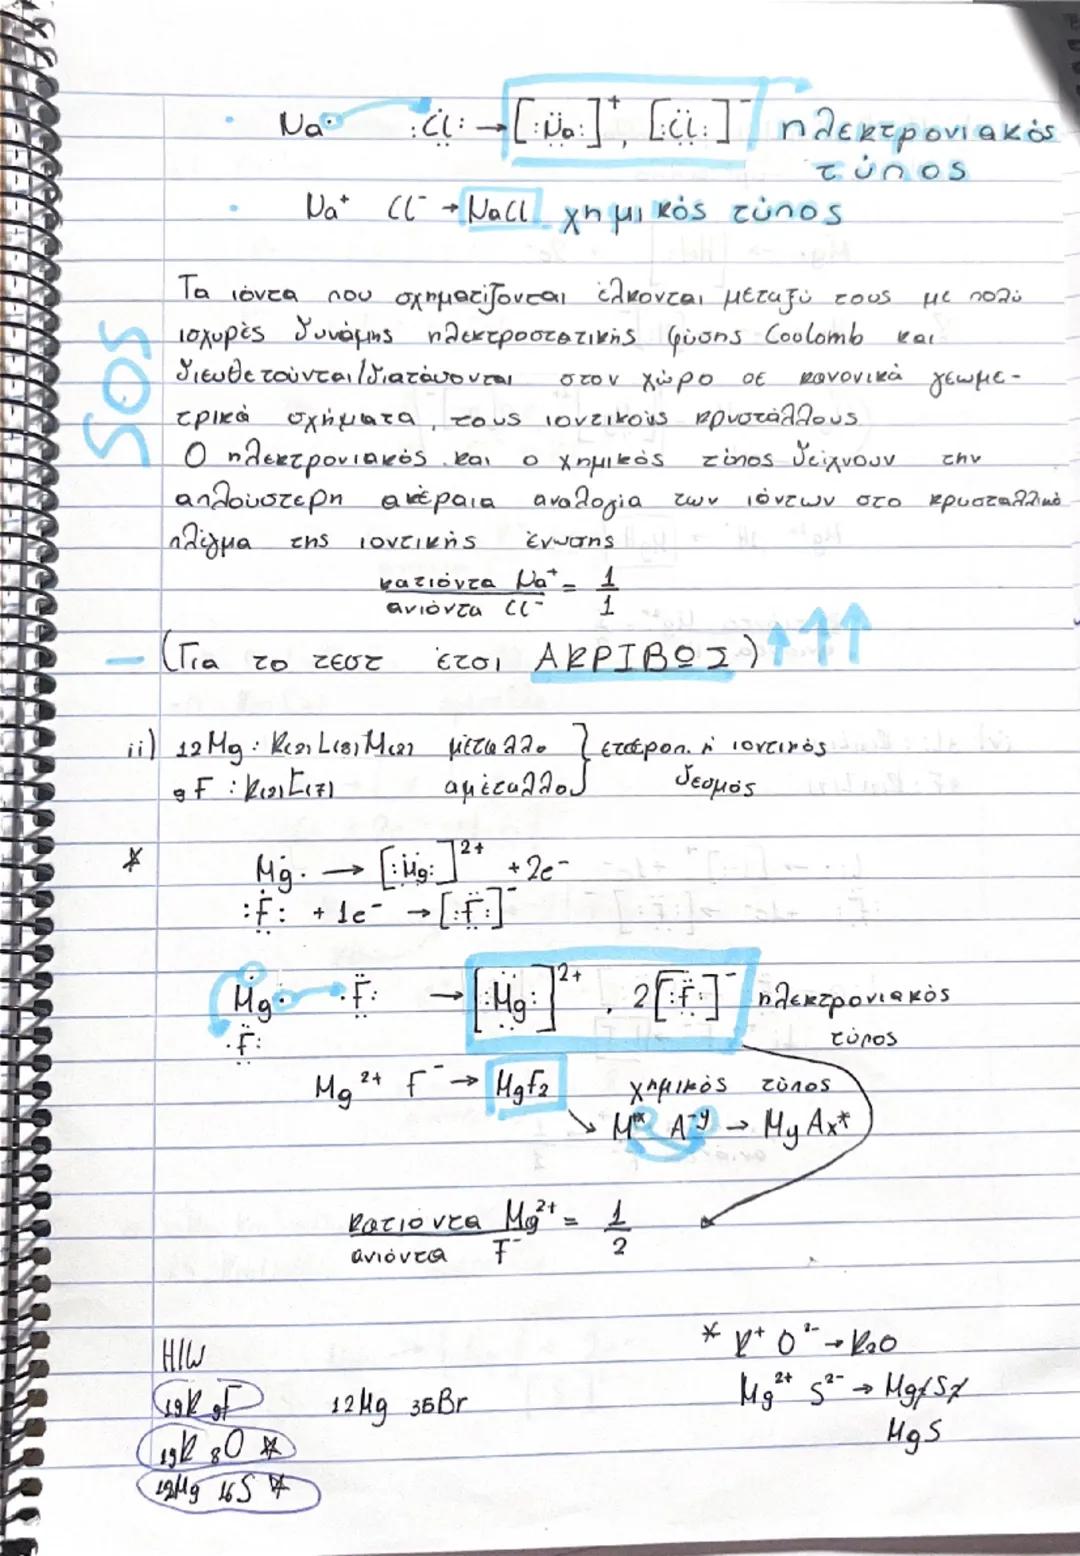 Na· :Cl: → [:Na:]⁺, [:Cl:]⁻ ηλεκτρονιακός
τύπος
Na⁺ Cl⁻ → NaCl χημικός τύπος
Τα ιόντα που σχηματίζονται έλκονται μεταξύ τους με πολύ
ισχυρές δυνάμης ηλεκτροστατικής φύσης Coolomb και
διευθετούνται/διατάσονται στον χώρο σε κανονικά γεωμε-
τρικά σχήματα, τους ιοντικούς κρυστάλλους
SOS
Ο ηλεκτρονιακός και ο χημικός τύπος δείχνουν την
απλούστερη ακέραια αναλογία των ιόντων στο κρυσταλλικό
πλέγμα της ιοντικής ένωσης
κατιόντα Na⁺ = 1
ανιόντα Cl⁻ 1
– (Για το τεστ έτσι ΑΚΡΙΒΩΣ) ↑↑↑
ii) 12Mg: K(2) L(8) M(2) μέταλλο } ετεροπ. ή ιοντικός
9F: K(2) L(7) αμέταλλο δεσμός
* Mg· → [:Mg:]²⁺ + 2e⁻
:F: + 1e⁻ → [:F:]⁻
Mg· ·F: → [:Mg:]²⁺, 2[:F:]⁻ ηλεκτρονιακός
·F: τύπος
Mg²⁺ F⁻ → MgF₂ χημικός τύπος
M⁺ˣ A⁻ʸ → MyAx*
κατιόντα Mg²⁺ = 1
ανιόντα F⁻ 2
* K⁺ O²⁻ → K₂O
H/W
Mg²⁺ S²⁻ → Mg₂S₂
19K 9F 12Mg 35Br
MgS
19K 8O *
12Mg 16S *